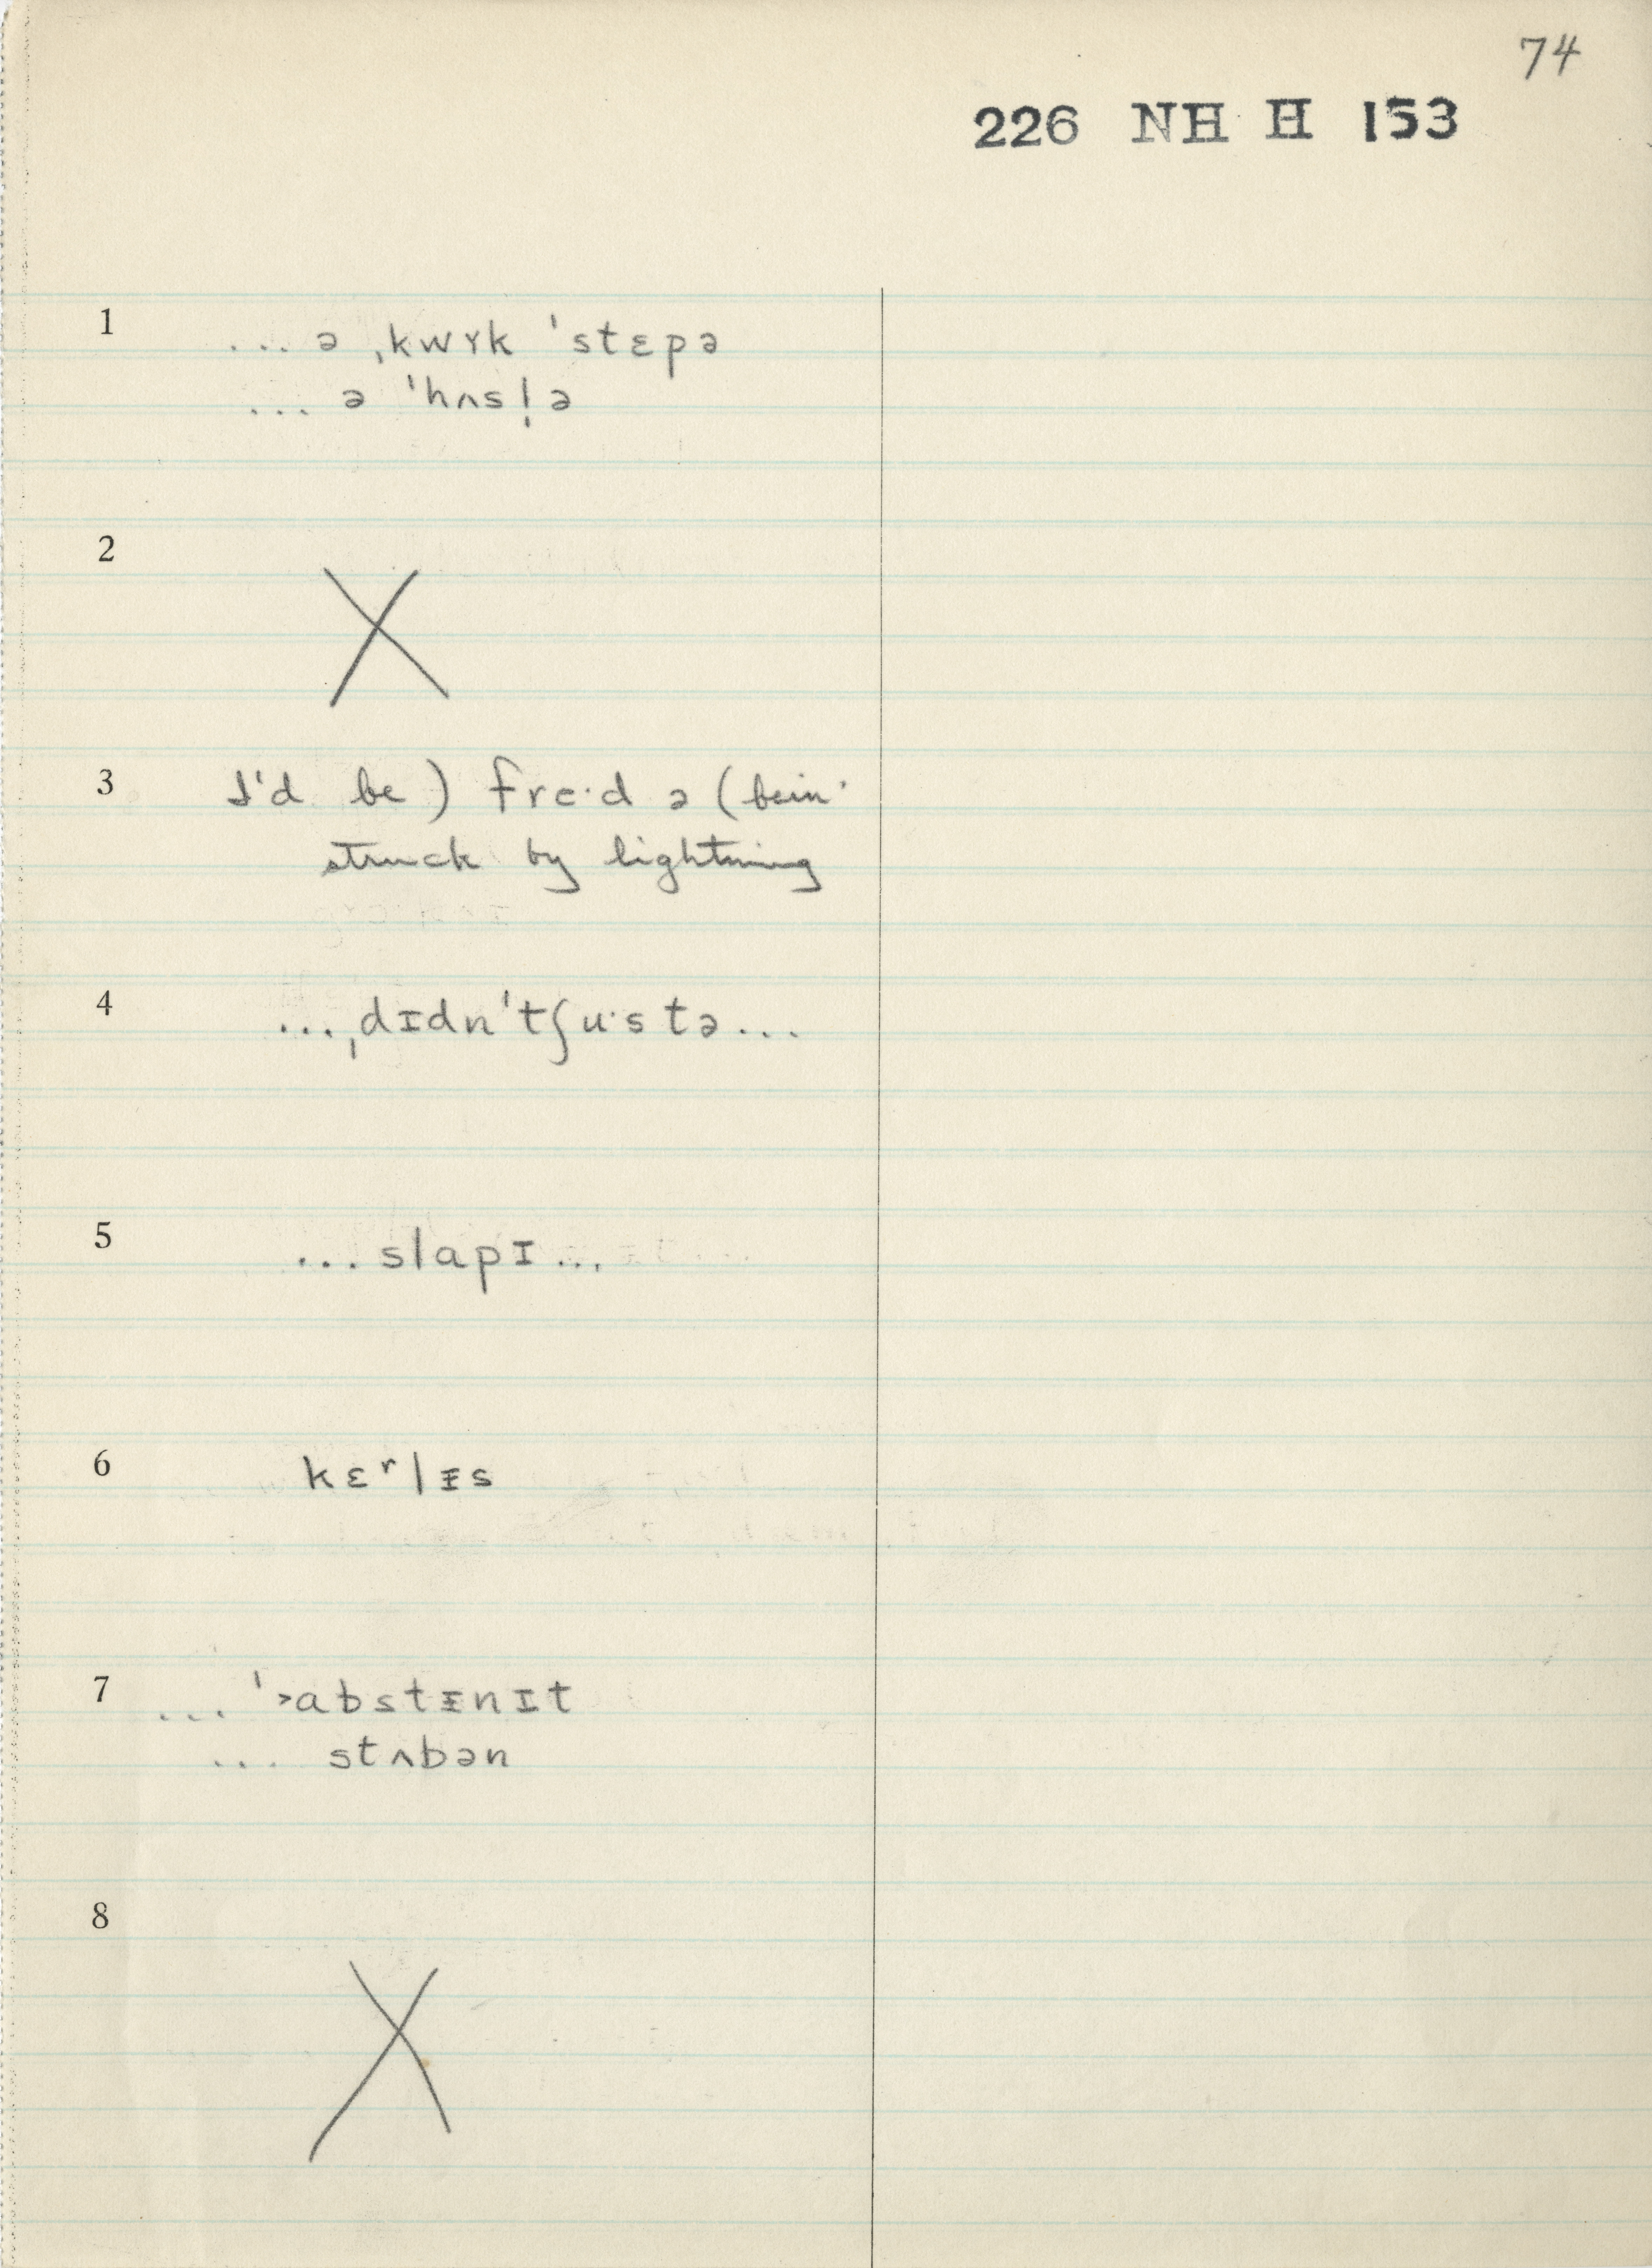 74
226 NH H 153
1
... ə ˌkwɤk ˈstɛpə
... ə ˈhʌsl̩ə
2
X
3
I'd be) fre·d ə (bein'
struck by lightning
4
...ˌdɪdnˈtʃu·stə...
5
...slapɪ...
6
kɛʳlᵻs
7
... ˈ˃abstᵻnɪt
... stʌbən
8
X